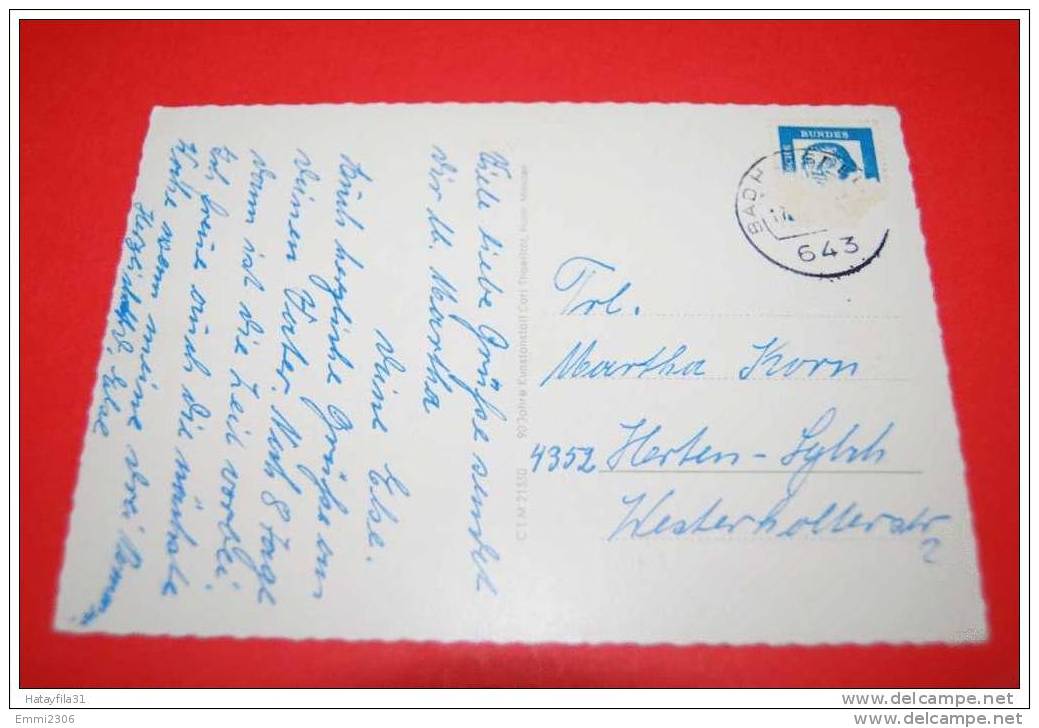 Viele liebe Grüße sendet
Dir lb. Martha
Deine Else.
Auch herzliche Grüße an
Deinen Vater. Noch 8 Tage
dann ist die Zeit vorbei
Ich freue mich die nächste
Woche wenn meine drei kommen.
Herzlichst Else
C.T.M 21550 90 Jahre Kunstanstalt Carl Thoericht, Hann. Münden
BUNDES
BAD
643
Frl.
Martha Korn
4352 Herten-
Westerholterstr
Hatayfila31
www.delcampe.net
Emmi2306
www.delcampe.net